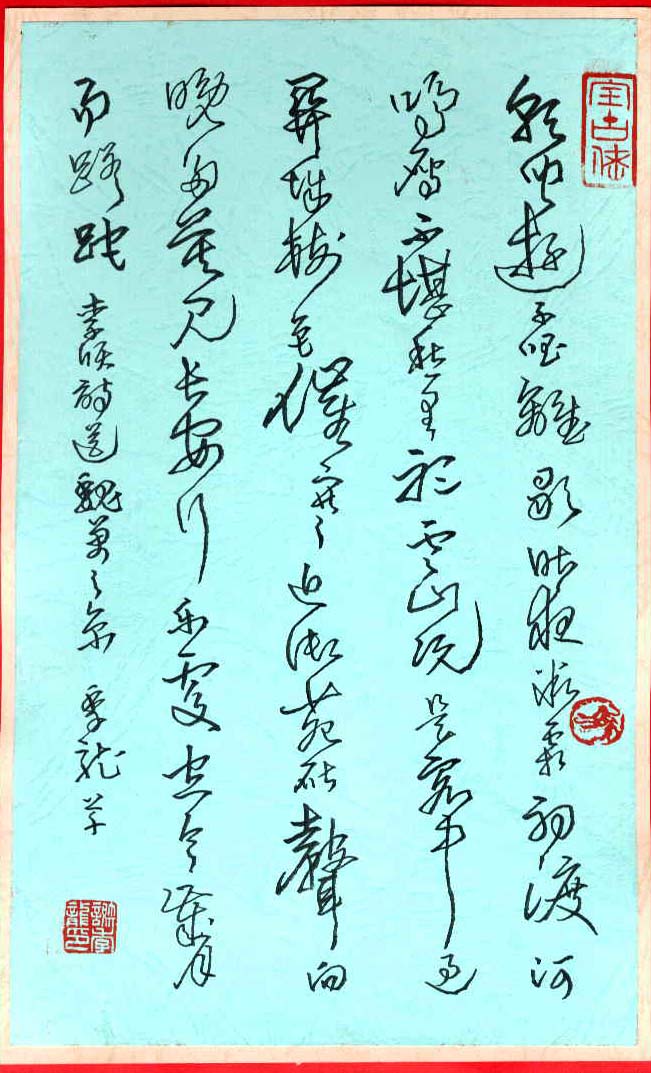 朝聞遊子唱離歌昨夜微霜初渡河
鴻雁不堪愁里听云山况是客中过
關城樹色催寒近御苑砧聲向
晚多莫见长安行乐處空令歲月
易蹉跎 李颀詩送魏萬之京 季龍草